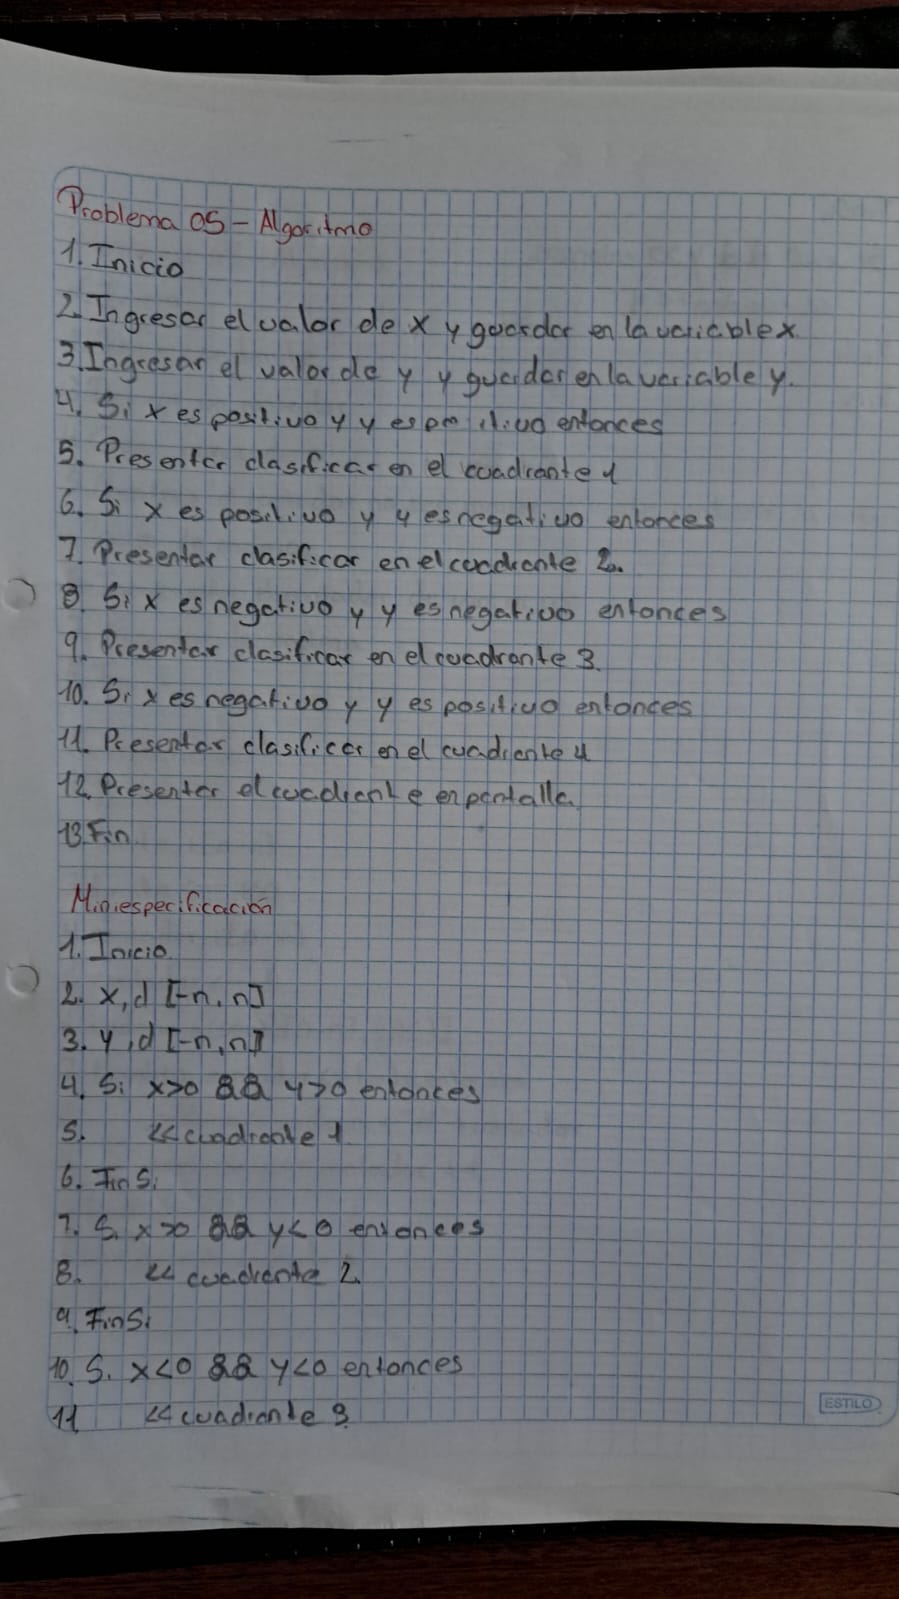 Problema 05 - Algoritmo
1. Inicio
2. Ingresar el valor de x y guardar en la variable x.
3. Ingresar el valor de y y guardar en la variable y.
4. Si x es positivo y y es positivo entonces
5. Presentar clasificar en el cuadrante 1
6. Si x es positivo y y es negativo entonces
7. Presentar clasificar en el cuadrante 2.
8. Si x es negativo y y es negativo entonces
9. Presentar clasificar en el cuadrante 3.
10. Si x es negativo y y es positivo entonces
11. Presentar clasificar en el cuadrante 4
12. Presentar el cuadrante en pantalla.
13. Fin
Miniespecificación
1. Inicio
2. x, d [-n, n]
3. y, d [-n, n]
4. Si x>0 && y>0 entonces
5. << cuadrante 1
6. FinSi
7. Si x>0 && y<0 entonces
8. << cuadrante 2
9. FinSi
10. Si x<0 && y<0 entonces
11 << cuadrante 3
ESTILO